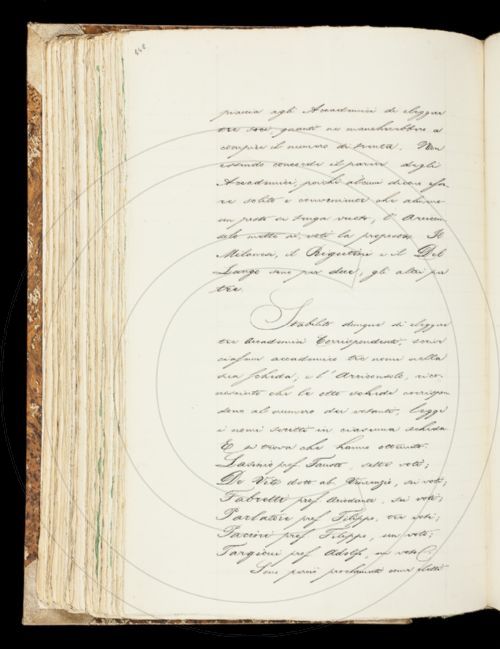 piaccia agli Accademici di eleggere
tre soci, quanti ne mancherebbero a
compire il numero di trenta. Non
essendo concorde il parere degli
Accademici, poichè alcuni dicono esse-
re solito e conveniente che alcuno
un posto si tenga vuoto, l'Arcicon-
solo mette ai voti la proposta. Il
Milanesi, il Rigutini e il Del
Lungo sono per due; gli altri per
tre.
Stabilito dunque di eleggere
tre Accademici Corrispondenti, scrive
ciascun accademico tre nomi nella
sua scheda, e l'Arciconsolo, rico-
nosciuto che le otto schede corrispon-
dono al numero dei votanti, legge
i nomi scritti in ciascuna scheda.
E si trova che hanno ottenuto:
Lasinio prof. Fausto, sette voti;
De Vit dott. ab. Vincenzio, sei voti;
Fabretti prof. Ariodante, sei voti;
Parlatore prof. Filippo, tre voti;
Pacini prof. Filippo, un voto;
Targioni prof. Adolfo, un voto.
Sono perciò proclamati come eletti